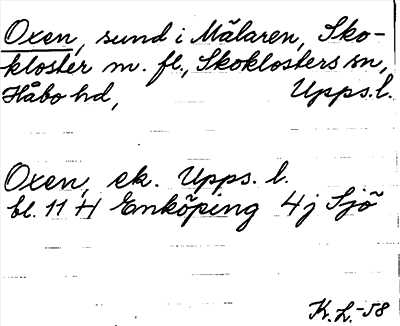 Oxen, sund i Mälaren, Sko-
kloster m. fl., Skoklosters sn,
Håbo hd, Upps. l.
Oxen, ek. Upps. l.
bl. 11 H Enköping 4j Sjö
K. L. -58